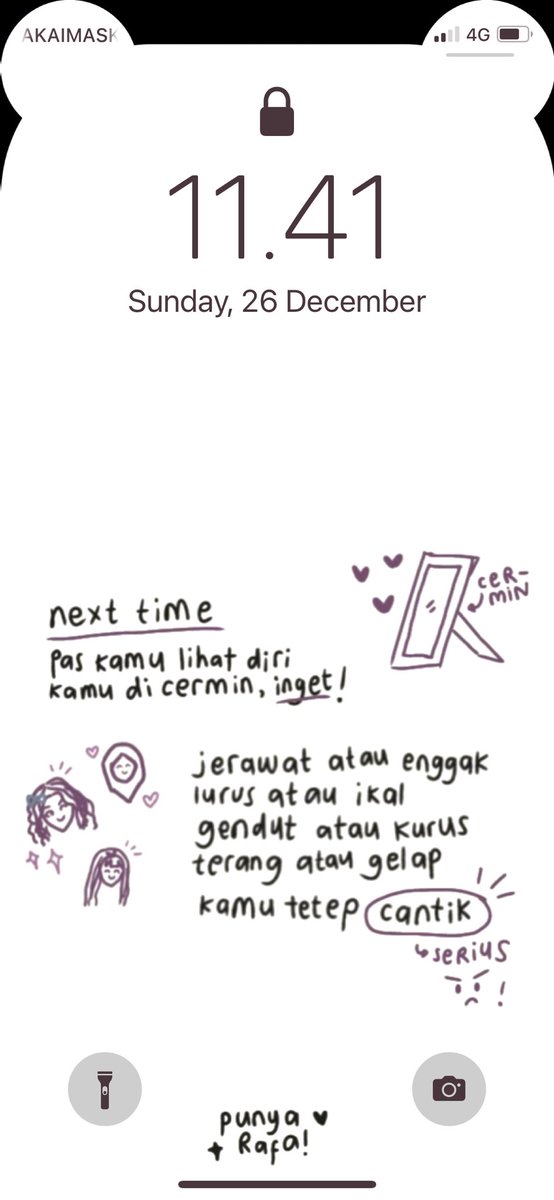 AKAIMASK
4G
11.41
Sunday, 26 December
CERMIN
next time
pas kamu lihat diri
kamu di cermin, inget!
jerawat atau enggak
lurus atau ikal
gendut atau kurus
terang atau gelap
kamu tetep cantik
SERIUS
!
punya
Rafa!